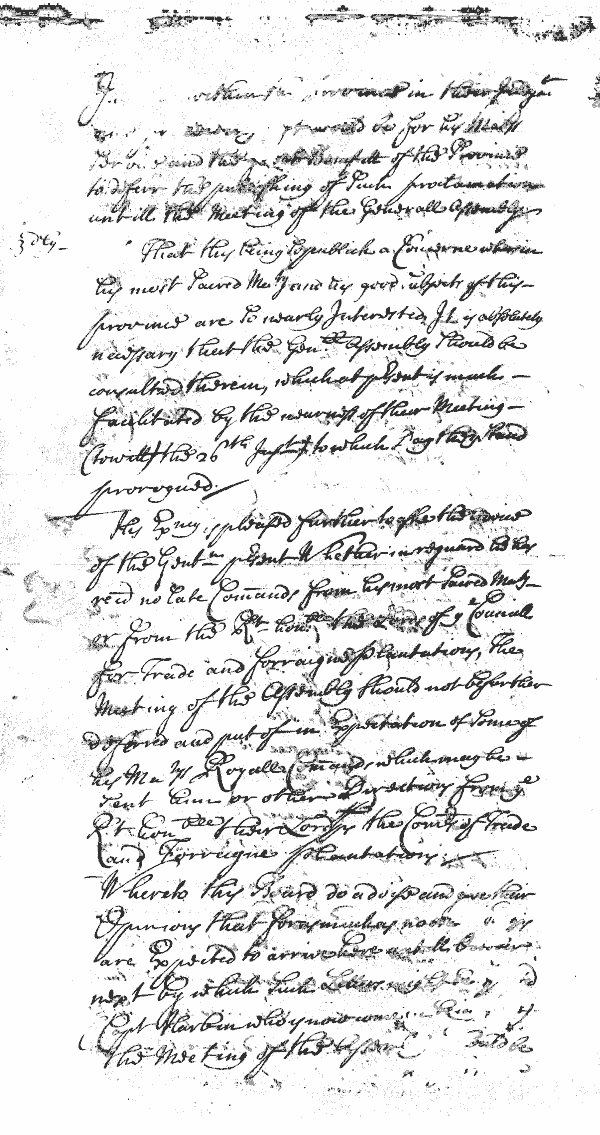 within the Province in their
would be for his Majts
Service and the Benefitt of the Province
to deferr the publishing of such proclamation
untill the Meeting of the Generall Assembly
That this being so publick a Concerne wherein
his most Sacred Maty and his good subjects of this
province are so nearly Interested, It is absolutely
necessary that the Genll Assembly should be
consulted therein, which at present is much
facilitated by the nearness of their Meeting
(to witt) the 26th Inst to which Day they stand
prorogued
His Exncy is pleased further to aske the
of the Gentn present Whether in reguard he has
recd no late Comands from his most Sacred Maty
or from the Rt honble the Lords of ye Councill
for Trade and forraigne plantations, The
Meeting of the Assembly should not be further
deferred and put of in Expectation of some of
his Matys Royall Comands, which may be
sent him or other Directions from ye
Rt honble their Lordps the Comrs of Trade
and Forraigne plantations;
Whereto this Board do advise and give their
Opinions that forasmuch as no
are Expected to arrive here untill
next by which such Letters might
Capt who is now
the Meeting of the should be